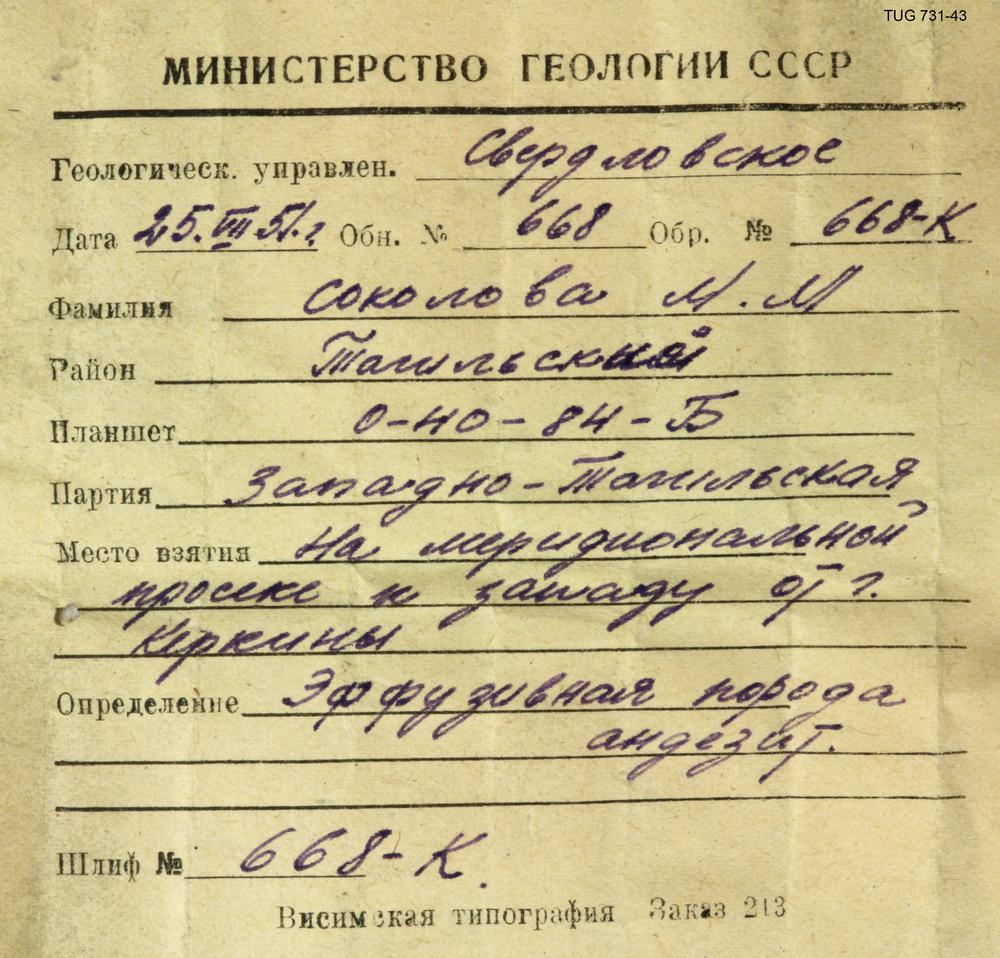 TUG 731-43
МИНИСТЕРСТВО ГЕОЛОГИИ СССР
Геологическ. управлен. Свердловское
Дата 25.VIII 51.г Обн. № 668 Обр. № 668-К
Фамилия Соколова М.М
Район Тагильский
Планшет О-40-84-Б
Партия Западно-Тагильская
Место взятия На меридиональной
просеке к западу от г.
Керкины
Определение Эффузивная порода
андезит.
Шлиф № 668-К.
Висимская типография Заказ 213